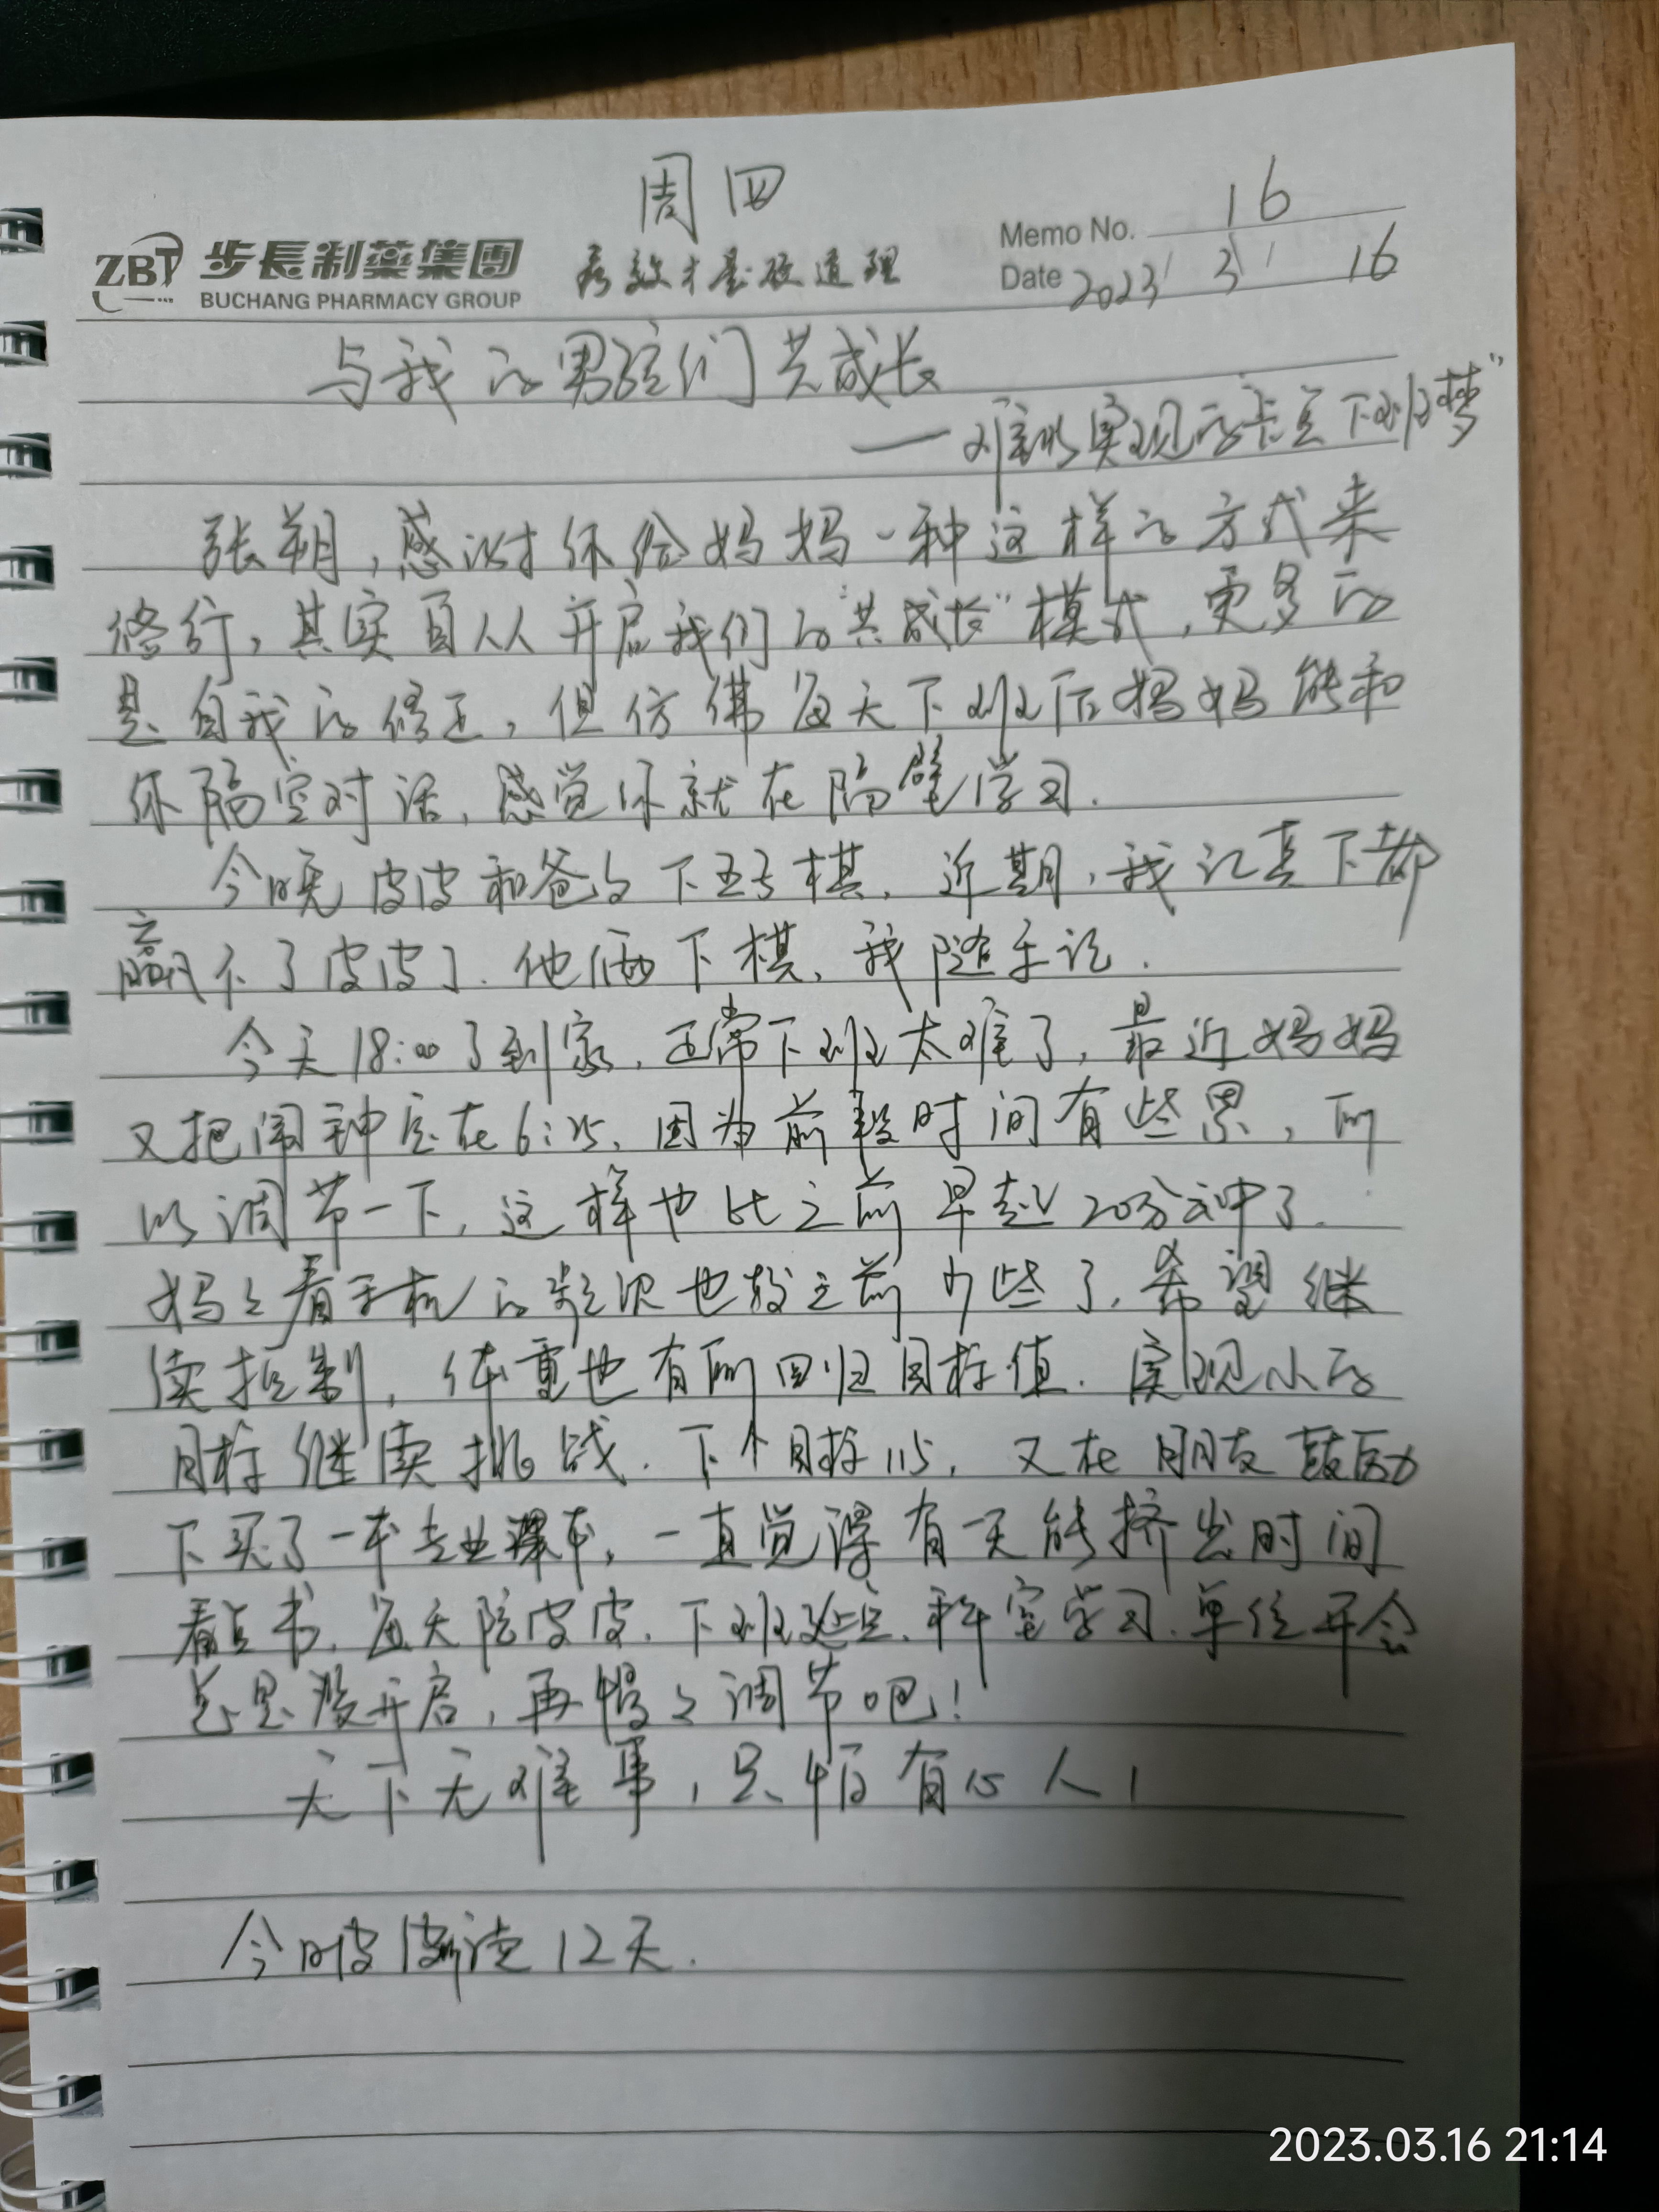 周四
ZBT 步長制藥集團
BUCHANG PHARMACY GROUP
疗效才是硬道理
Memo No. 16
Date 2023 / 3 / 16
与我的男孩们共成长
——难以实现的卡点下班梦”
张朔，感谢你给妈妈一种这样的方式来
修行，其实自从开启我们的“共成长”模式，更多的
是自我的修正，但仿佛每天下班后妈妈能和
你隔空对话，感觉你就在隔壁学习.
今晚皮皮和爸々下五子棋，近期，我认真下都
赢不了皮皮了. 他俩下棋，我随手记.
今天18:00了到家，正常下班太难了，最近妈妈
又把闹钟定在6:25，因为前段时间有些累，所
以调节一下，这样也比之前早起20分钟了.
妈々看手机的频次也较之前少些了，希望继
续控制，体重也有所回归目标值. 实现小的
目标继续挑战. 下个目标115，又在朋友鼓励
下买了一本专业课本，一直觉得有天能挤出时间
看点书，每天陪皮皮、下班延点、科室学习、单位开会
总是没开启，再慢々调节吧！
天下无难事，只怕有心人！
今日皮皮断读12天.
2023.03.16 21:14